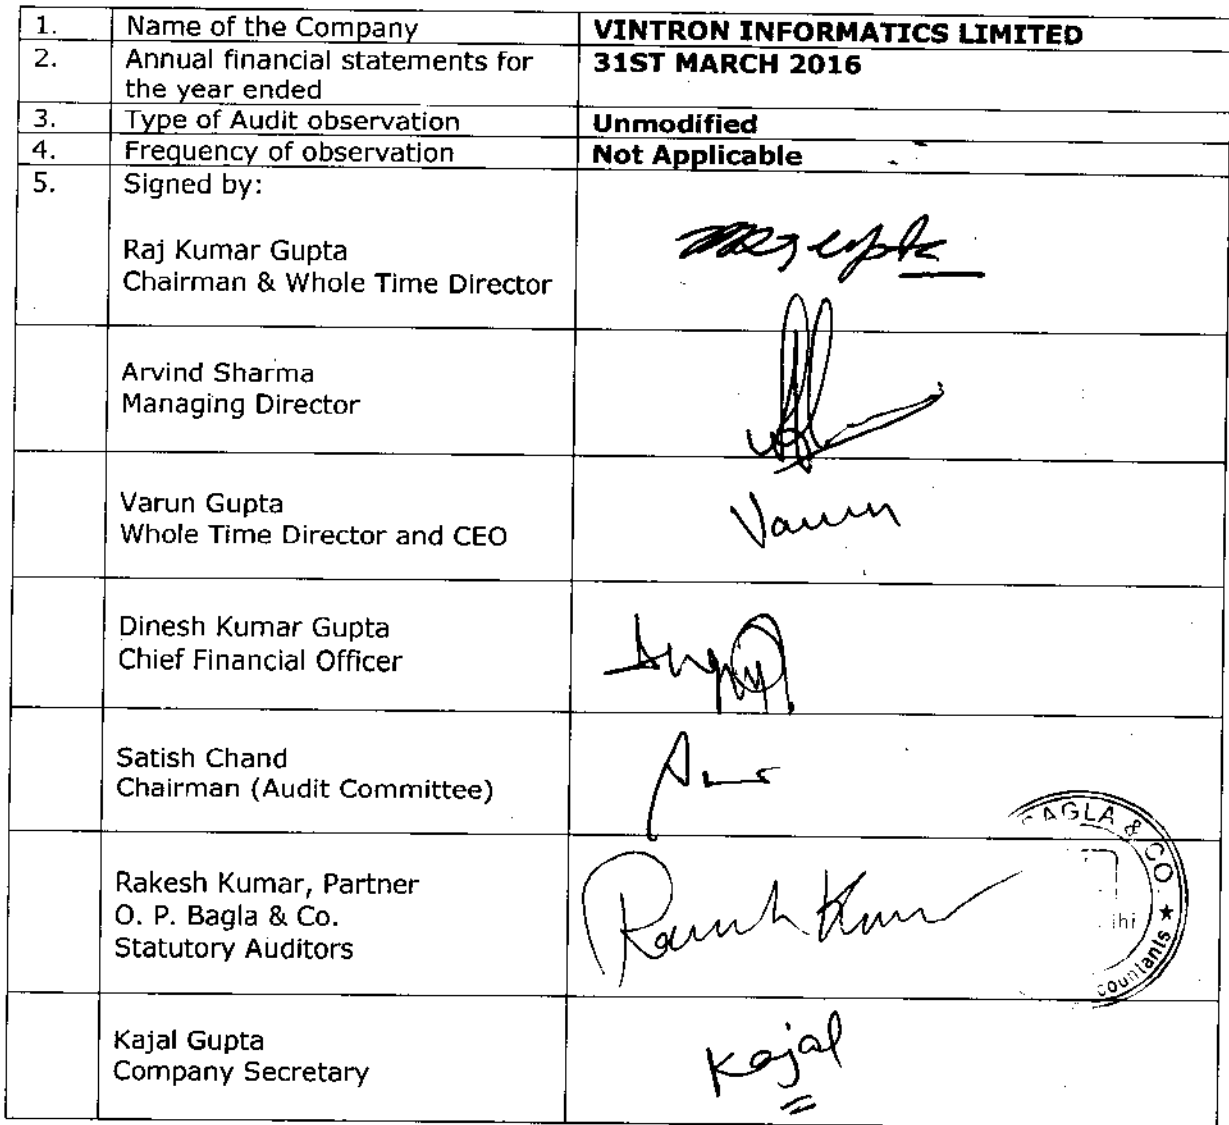 1. Name of the Company VINTRON INFORMATICS LIMITED
2. Annual financial statements for 31ST MARCH 2016
the year ended
3. Type of Audit observation Unmodified
4. Frequency of observation Not Applicable
5. Signed by:
Raj Kumar Gupta
Chairman & Whole Time Director
Arvind Sharma
Managing Director
Varun Gupta Varun
Whole Time Director and CEO
Dinesh Kumar Gupta
Chief Financial Officer
Satish Chand
Chairman (Audit Committee)
AGLA & CO.
Rakesh Kumar, Partner
O. P. Bagla & Co.
Statutory Auditors
Kajal Gupta Kajal
Company Secretary